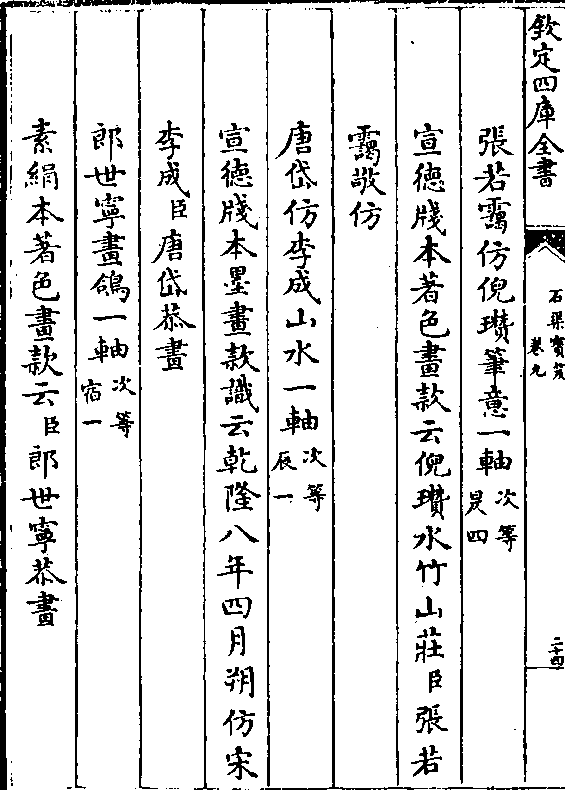 欽定四庫全書
石渠寶笈
卷九
二十四
張若靄仿倪瓚筆意一軸次等昃四
宣德牋本著色畫款云倪瓚水竹山莊臣張若
靄敬仿
唐岱仿李成山水一軸次等辰一
宣德牋本墨畫款識云乾隆八年四月朔仿宋
李成臣唐岱恭畫
郎世寧畫鴿一軸次等宿一
素絹本著色畫款云臣郎世寧恭畫